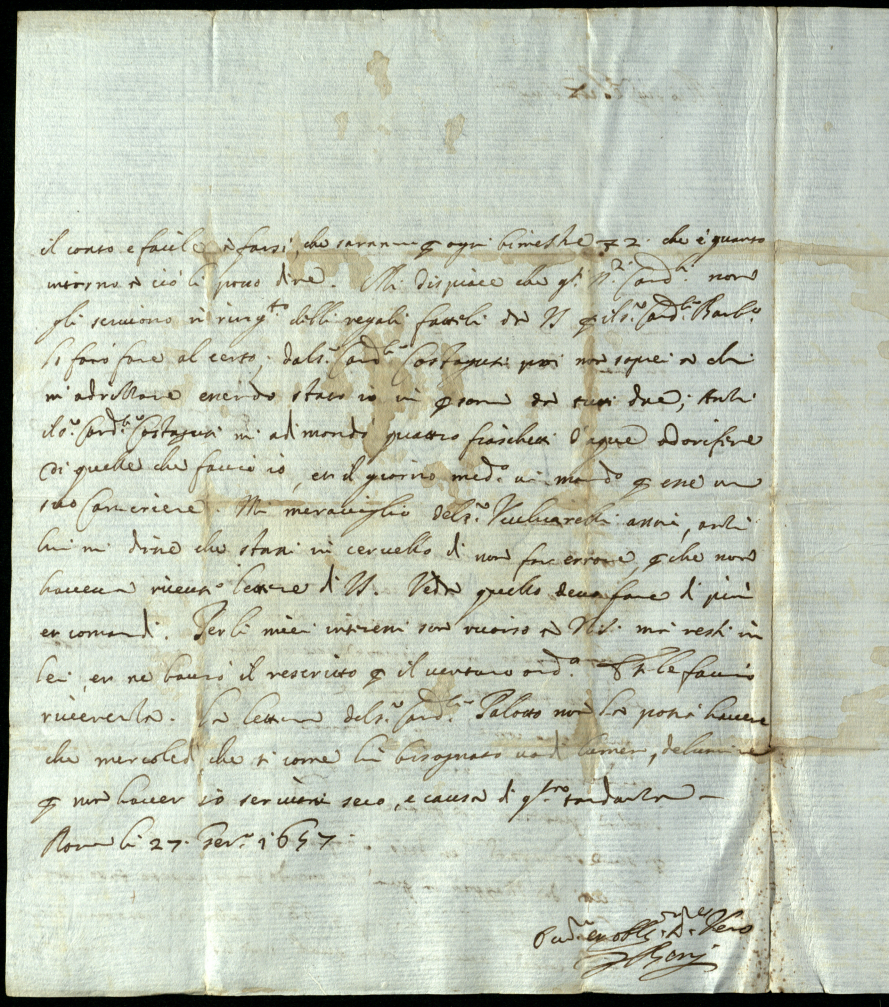 il conto e facile à farsi, che saranno ꝑ ogni bimestre 72. che é quanto
intorno à ciò li posso dire. Mi dispiace che q.ti S.ri Card.li non
gli scrivono in ring.to delli regali fattili da VS ꝑ il s.r Card.l Barb.o
lo farò fare al certo, dal s.r Card.le Costaguti poi non saprei à chi
m'adrittare essendo stato io in ꝑsona da tutti dua; Anzi
il s.r Card.le Costaguti mi adimandò quattro fiaschetti d'aque odorifere
di quelle che faccio io, et il giorno med.o mi mandò ꝑ esse un
suo Cameriere. Mi meraviglio del s.r anni, anzi
lui mi disse che stassi in cervello di non far errore, ꝑche non
haveva riceuto lettere di VS. Veda quello devo fare di più
et comandi. Per li miei interessi son ricorso à N.S. mi resti in
lei, et ne havrò il rescritto ꝑ il venturo ord.o Et le faccio
riverenza. La lettera del s.r Card.le Palotto non la potrà havere
che mercoledì che si come hà bisognato
ꝑ non haver io servitù seco, e causa di q.to tardanza –
Roma li 27. Gen.o 1657.
Ser.re